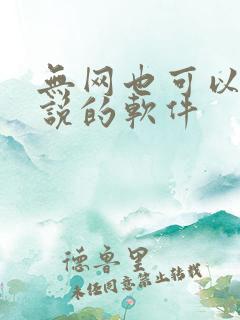 無网也可以
說的軟件
德鲁里
未经同意禁止转载